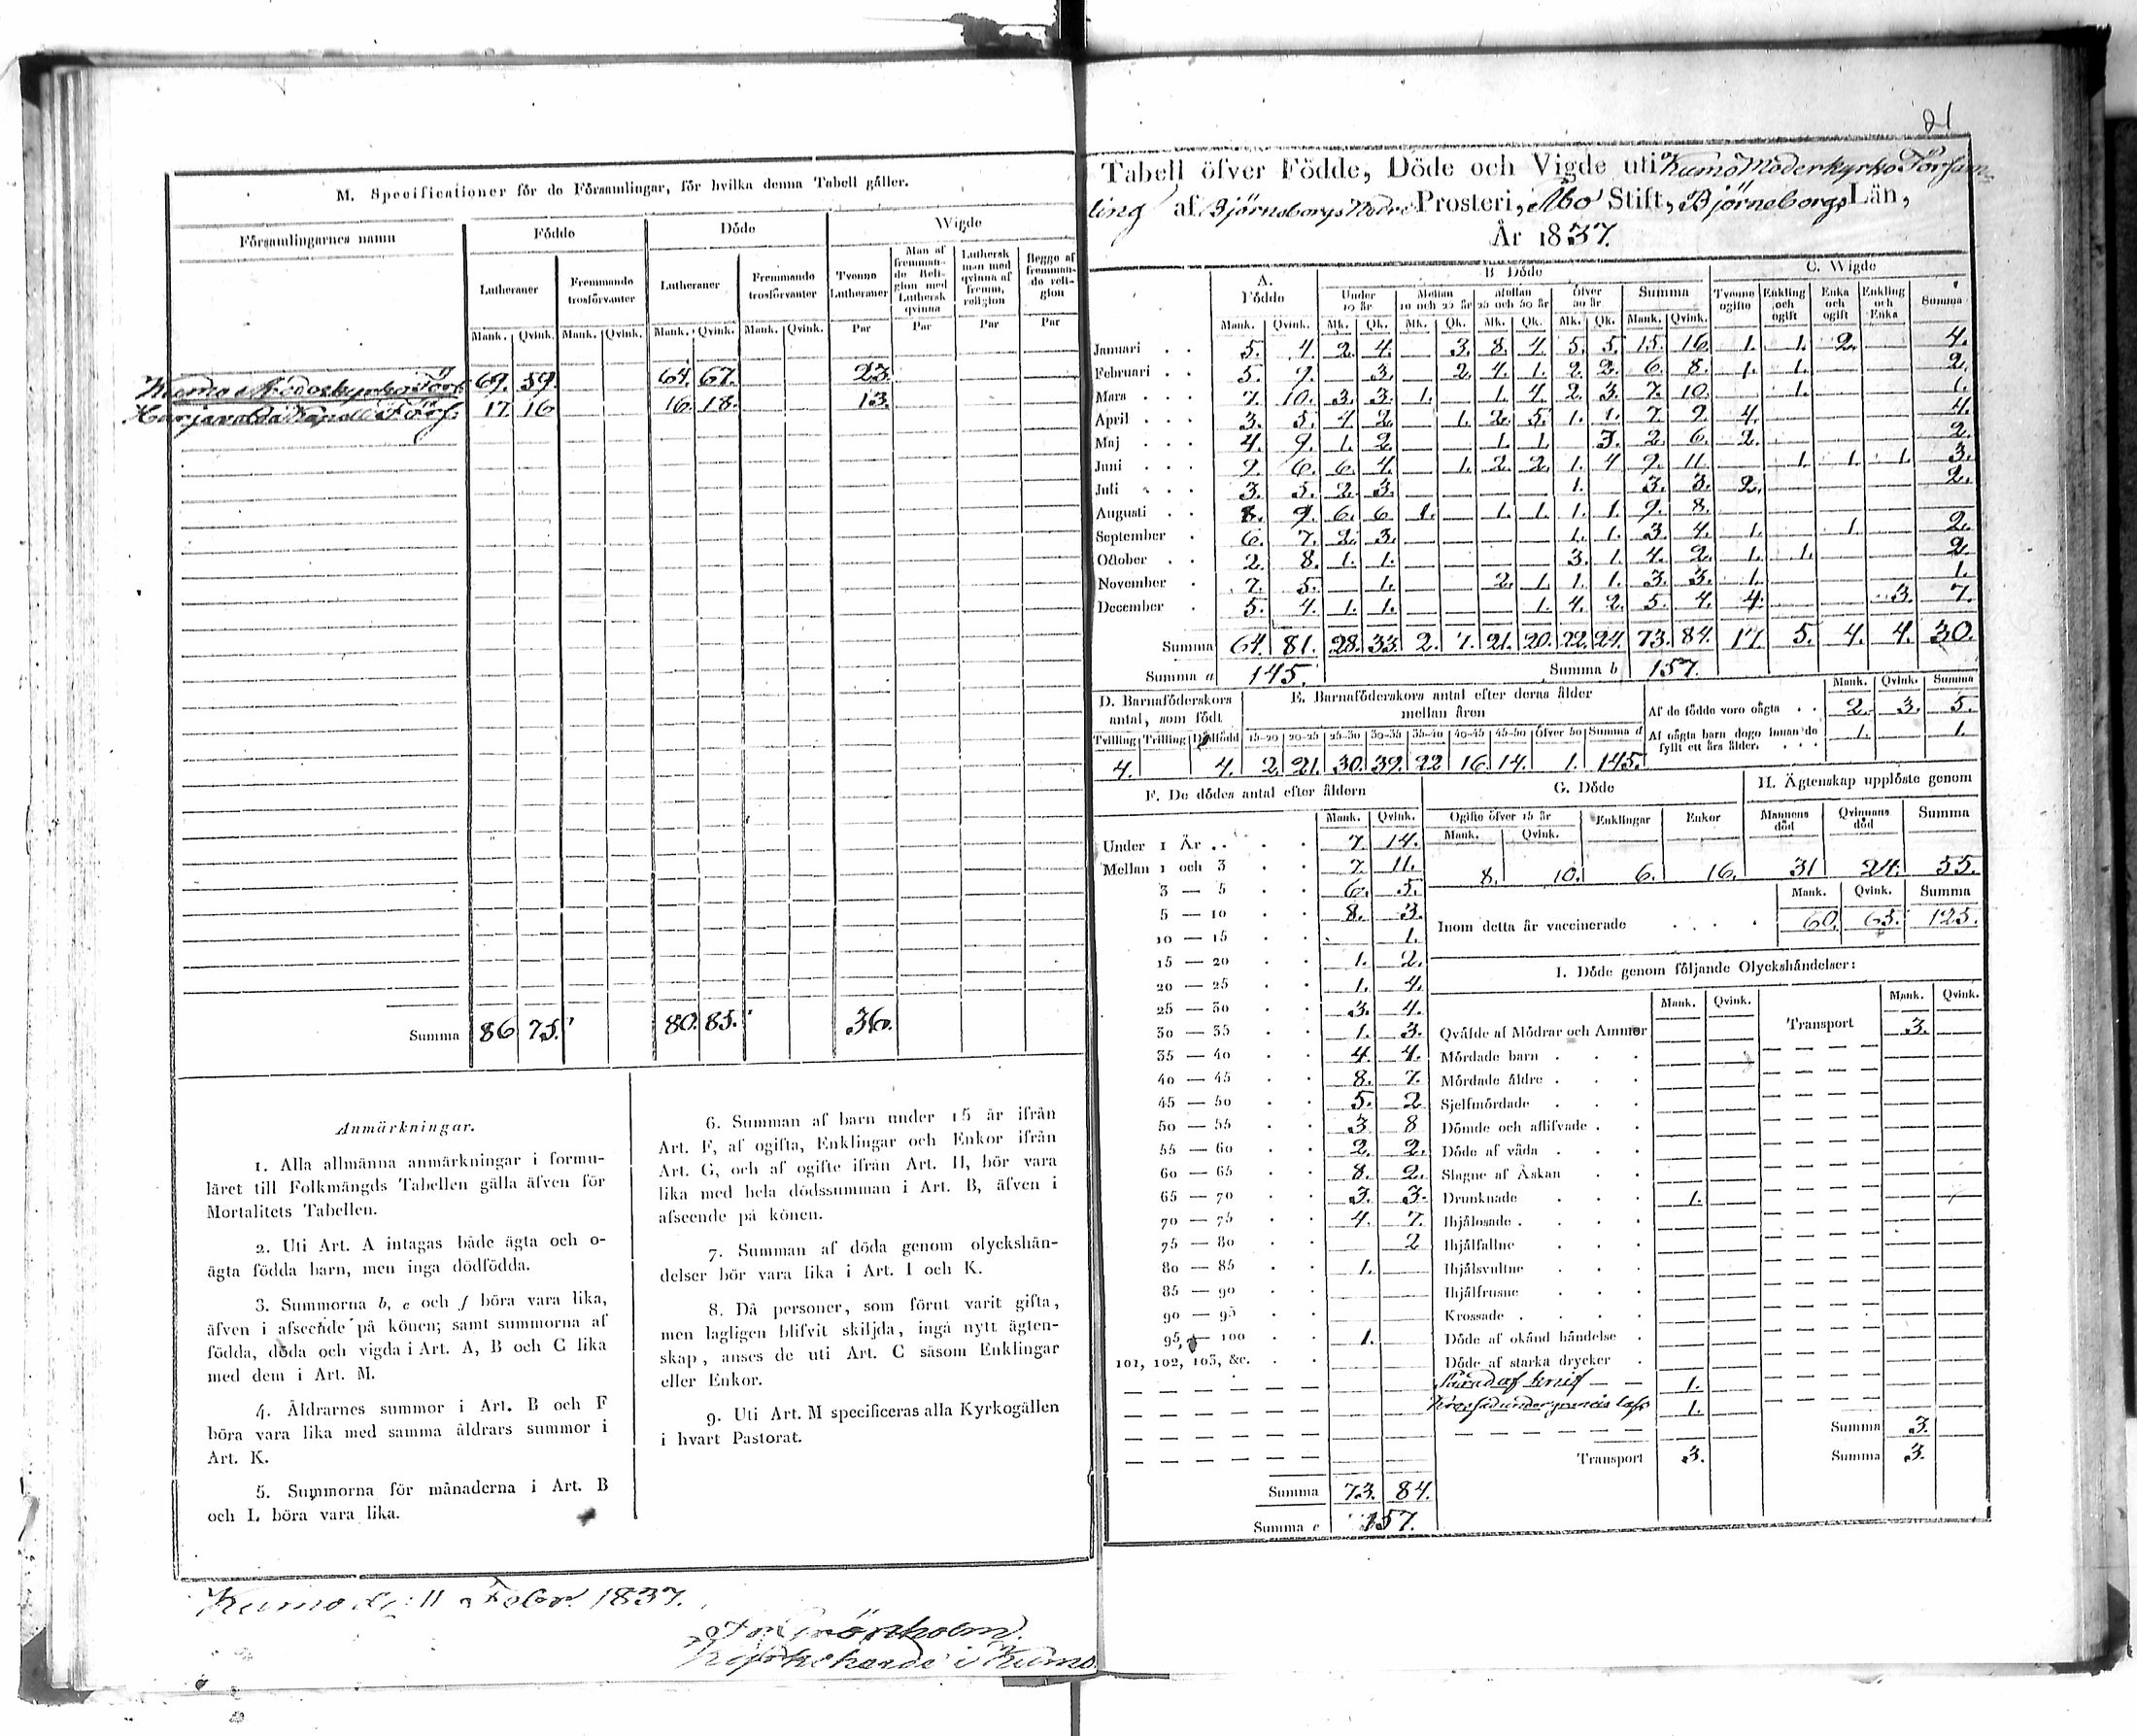 M. Specificationer för de Församlingar, för hvilka denna Tabell gäller.
Församlingarnes namn | Födde | Döde | Wigde
Lutheraner | Fremmande trosförvanter | Lutheraner | Fremmande trosförvanter | Tvenne Lutheraner | Man af fremmande Religion med Luthersk qvinna | Luthersk man med qvinna af fremm. religion | Begge af fremmande religion
Mank. Qvink. Mank. Qvink. Mank. Qvink. Mank. Qvink. Par Par Par Par
Kumo Moderkyrko Förs. 69. 59. 64. 67. 23.
Harjavalda Kapell Förs. 17. 16 16. 18. 13.
Summa 86 75. 80. 85. 36.
Anmärkningar.
1. Alla allmänna anmärkningar i formu-
läret till Folkmängds Tabellen gälla äfven för
Mortalitets Tabellen.
2. Uti Art. A intagas både ägta och o-
ägta födda barn, men inga dödfödda.
3. Summorna b, e och f böra vara lika,
äfven i afseende på könen; samt summorna af
födda, döda och vigda i Art. A, B och C lika
med dem i Art. M.
4. Äldrarnes summor i Art. B och F
böra vara lika med samma åldrars summor i
Art. K.
5. Summorna för månaderna i Art. B
och L böra vara lika.
6. Summan af barn under 15 år ifrån
Art. F, af ogifta, Enklingar och Enkor ifrån
Art. G, och af ogifte ifrån Art. H, bör vara
lika med hela dödssumman i Art. B, äfven i
afseende på könen.
7. Summan af döda genom olyckshän-
delser bör vara lika i Art. I och K.
8. Då personer, som förut varit gifta,
men lagligen blifvit skiljda, ingå nytt ägten-
skap, anses de uti Art. C såsom Enklingar
eller Enkor.
9. Uti Art. M specificeras alla Kyrkogällen
i hvart Pastorat.
Kumo d. 11 Febr. 1837.
Grönholm.
Kyrkoherde i Kumo
21
Tabell öfver Födde, Döde och Vigde uti Kumo Moderkyrko Församling
af Björneborgs Nedre Prosteri, Åbo Stift, Björneborgs Län,
År 1837.
A. Födde | B Döde | C. Wigde
Under 10 år | Mellan 10 och 25 år | Mellan 25 och 50 år | öfver 50 år | Summa | Tvenne ogifte | Enkling och ogift | Enka och ogift | Enkling och Enka | Summa
Mank. Qvink. Mk. Qk. Mk. Qk. Mk. Qk. Mk. Qk. Mank. Qvink.
Januari . . 5. 4. 2. 4. — 3. 8. 4. 5. 5. 15. 16. 1. 1. 2. 4.
Februari . . 5. 9. — 3. — 2. 4. 1. 2. 2. 6. 8. 1. 1. 2.
Mars . . . 7. 10. 3. 3. 1. — 1. 4. 2. 3. 7. 10. 1. 1.
April . . . 3. 5. 4. 2. — 1. 2. 5. 1. 1. 7. 9. 4. 4.
Maj . . . 4. 9. 1. 2. 1. 1. 3. 2. 6. 2. 2.
Juni . . . 9. 6. 6. 4. — 1. 2. 2. 1. 4. 9. 11. 1. 1. 1. 3.
Juli . . . 3. 5. 2. 3. — 1. 3. 3. 2. 2.
Augusti . . 8. 9. 6. 6. 1. — 1. 1. 1. 1. 9. 8.
September . 6. 7. 2. 3. 1. 1. 3. 4. 1. 1. 2.
October . . 2. 8. 1. 1. 3. 1. 4. 2. 1. 1. 2.
November . 7. 5. — 1. 2. 1. 1. 1. 3. 3. 1. 1.
December . 5. 4. 1. 1. 1. 4. 2. 5. 4. 4. 3. 7.
Summa 64. 81. 28. 33. 2. 7. 21. 20. 22. 24. 73. 84. 17. 5. 4. 4. 30.
Summa a 145. Summa b 157.
D. Barnaföderskors antal, som födt
Tvilling Trilling Dödfödd
4. 4.
E. Barnaföderskors antal efter deras ålder mellan åren
15-20 20-25 25-30 30-35 35-40 40-45 45-50 öfver 50 Summa d
2. 21. 30. 39. 22 16. 14. 1. 145.
Mank. Qvink. Summa
Af de födde voro oägta . . 2. 3. 5.
Af oägta barn dogo innan de fyllt ett års ålder. . . . 1. 1.
F. De dödes antal efter åldern
Mank. Qvink.
Under 1 År . . 7. 14.
Mellan 1 och 3 7. 11.
3 — 5 6. 5.
5 — 10 8. 3.
10 — 15 1.
15 — 20 1. 2.
20 — 25 1. 4.
25 — 30 3. 4.
30 — 35 1. 3.
35 — 40 4. 4.
40 — 45 8. 7.
45 — 50 5. 2
50 — 55 3 8
55 — 60 2. 2.
60 — 65 8. 2.
65 — 70 3. 3.
70 — 75 4. 7.
75 — 80 2
80 — 85 1.
85 — 90
90 — 95
95 — 100 1.
101, 102, 103, &c.
Summa 73. 84.
Summa e 157.
G. Döde
Ogifte öfver 15 år | Enklingar | Enkor
Mank. Qvink.
8. 10. 6. 16.
H. Ägtenskap upplöste genom
Mannens död | Qvinnans död | Summa
31 24. 55.
Mank. Qvink. Summa
Inom detta år vaccinerade . . . . 60. 65. 125.
I. Döde genom följande Olyckshändelser:
Mank. Qvink. Mank. Qvink.
Qväfde af Mödrar och Ammor Transport 3.
Mördade barn . . .
Mördade äldre . . .
Sjelfmördade . . .
Dömde och aflifvade .
Döde af våda . . .
Slagne af Åskan . .
Drunknade . . . 1.
Ihjälosade . . . .
Ihjälfallne . . .
Ihjälsvultne . . .
Ihjälfrusne . . .
Krossade . . . .
Döde af okänd händelse .
Döde af starka drycker .
Sårad af knif — — 1.
under lass 1.
Summa 3.
Transport 3. Summa 3.